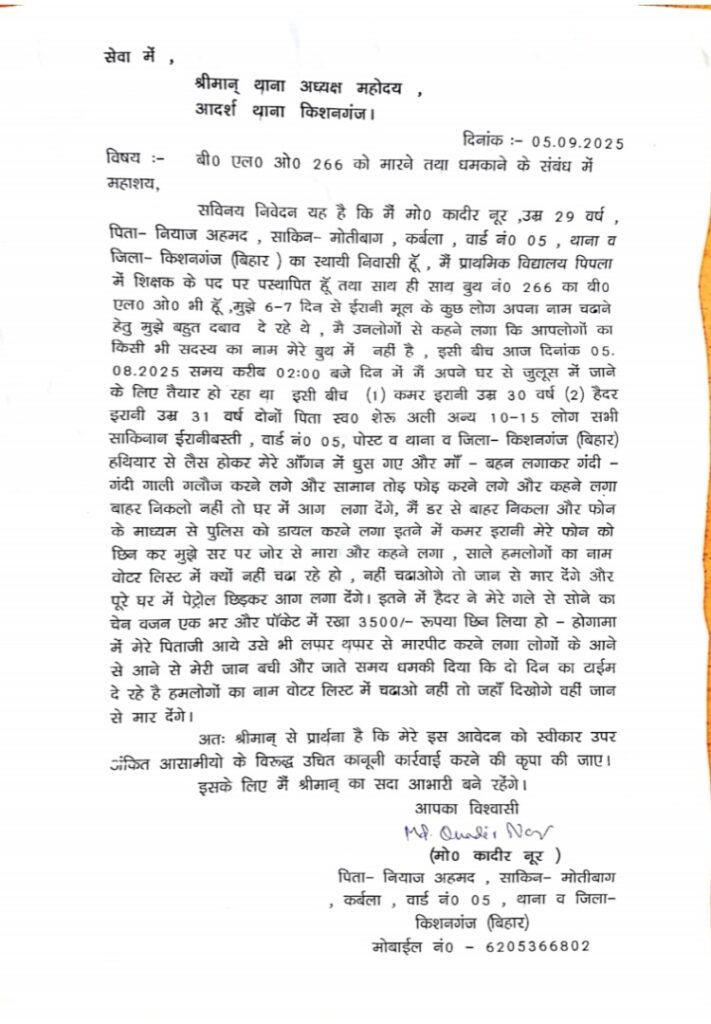 सेवा में ,
श्रीमान् थाना अध्यक्ष महोदय ,
आदर्श थाना किशनगंज।
दिनांक :- 05.09.2025
विषय :- बी0 एल0 ओ0 266 को मारने तथा धमकाने के संबंध में
महाशय,
सविनय निवेदन यह है कि मैं मो0 कादीर नूर ,उम्र 29 वर्ष ,
पिता- नियाज अहमद , साकिन- मोतीबाग , कर्बला , वार्ड नं0 05 , थाना व
जिला- किशनगंज (बिहार ) का स्थायी निवासी हूँ , मैं प्राथमिक विद्यालय पिपला
में शिक्षक के पद पर पस्थापित हूँ तथा साथ ही साथ बुथ नं0 266 का बी0
एल0 ओ0 भी हूँ ,मुझे 6-7 दिन से ईरानी मूल के कुछ लोग अपना नाम चढाने
हेतु मुझे बहुत दबाव दे रहे थे , मै उनलोगों से कहने लगा कि आपलोगों का
किसी भी सदस्य का नाम मेरे बुथ में नहीं है , इसी बीच आज दिनांक 05.
08.2025 समय करीब 02:00 बजे दिन में मैं अपने घर से जुलूस में जाने
के लिए तैयार हो रहा था इसी बीच (1) कमर इरानी उम्र 30 वर्ष (2) हैदर
इरानी उम्र 31 वर्ष दोनों पिता स्व0 शेरू अली अन्य 10-15 लोग सभी
साकिनान ईरानीबस्ती , वार्ड नं0 05, पोस्ट व थाना व जिला- किशनगंज (बिहार)
हथियार से लैस होकर मेरे आँगन में घुस गए और माँ - बहन लगाकर गंदी -
गंदी गाली गलौज करने लगे और सामान तोड़ फोड़ करने लगे और कहने लगा
बाहर निकलो नहीं तो घर में आग लगा देंगे, मैं डर से बाहर निकला और फोन
के माध्यम से पुलिस को डायल करने लगा इतने में कमर इरानी मेरे फोन को
छिन कर मुझे सर पर जोर से मारा और कहने लगा , साले हमलोगों का नाम
वोटर लिस्ट में क्यों नहीं चढा रहे हो , नहीं चढाओगे तो जान से मार देंगे और
पूरे घर में पेट्रोल छिड़कर आग लगा देंगे। इतने में हैदर ने मेरे गले से सोने का
चेन वजन एक भर और पॉकेट में रखा 3500/- रूपया छिन लिया हो - होगामा
में मेरे पिताजी आये उसे भी लप्पर थप्पर से मारपीट करने लगा लोगों के आने
से आने से मेरी जान बची और जाते समय धमकी दिया कि दो दिन का टाईम
दे रहे है हमलोगों का नाम वोटर लिस्ट में चढाओ नहीं तो जहाँ दिखोगे वहीं जान
से मार देंगे।
अतः श्रीमान् से प्रार्थना है कि मेरे इस आवेदन को स्वीकार उपर
अंकित आसामीयो के विरूद्ध उचित कानूनी कार्रवाई करने की कृपा की जाए।
इसके लिए मैं श्रीमान् का सदा आभारी बने रहेंगे।
आपका विश्वासी
Md. Quadir Nor
(मो0 कादीर नूर )
पिता- नियाज अहमद , साकिन- मोतीबाग
, कर्बला , वार्ड नं0 05 , थाना व जिला-
किशनगंज (बिहार)
मोबाईल नं0 - 6205366802